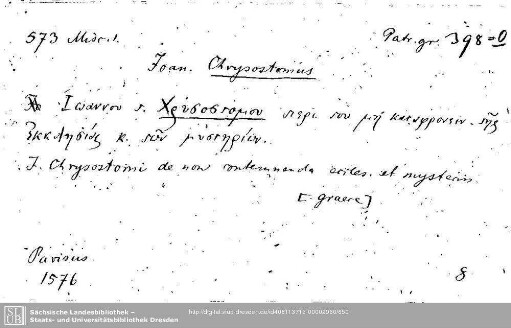 573 Misc. 1. Patr. gr. 398=0
Joan. Chrysostomus
Ἰωάννου τ. Χρυσοστομου περι του μη καταφρονειν της
Ἐκκλησίας κ. τῶν μυστηρίων.
J. Chrysostomi de non contemnenda eccles. et mysteriis
[graece]
Parisiis
1576 8
Sächsische Landesbibliothek –
Staats- und Universitätsbibliothek Dresden